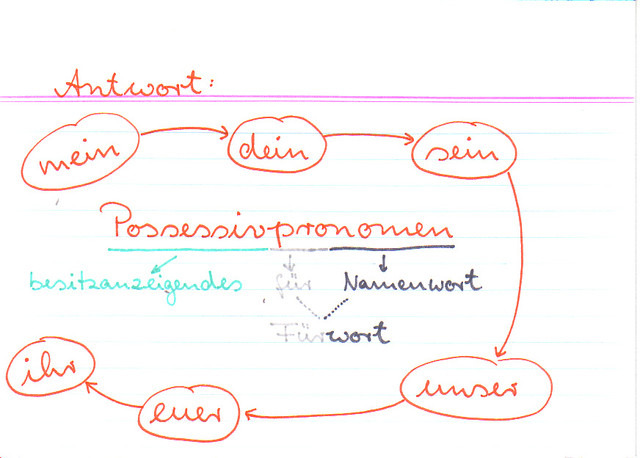 Antwort:
mein dein sein
Possessivpronomen
besitzanzeigendes für Namenwort
Fürwort
ihr euer unser